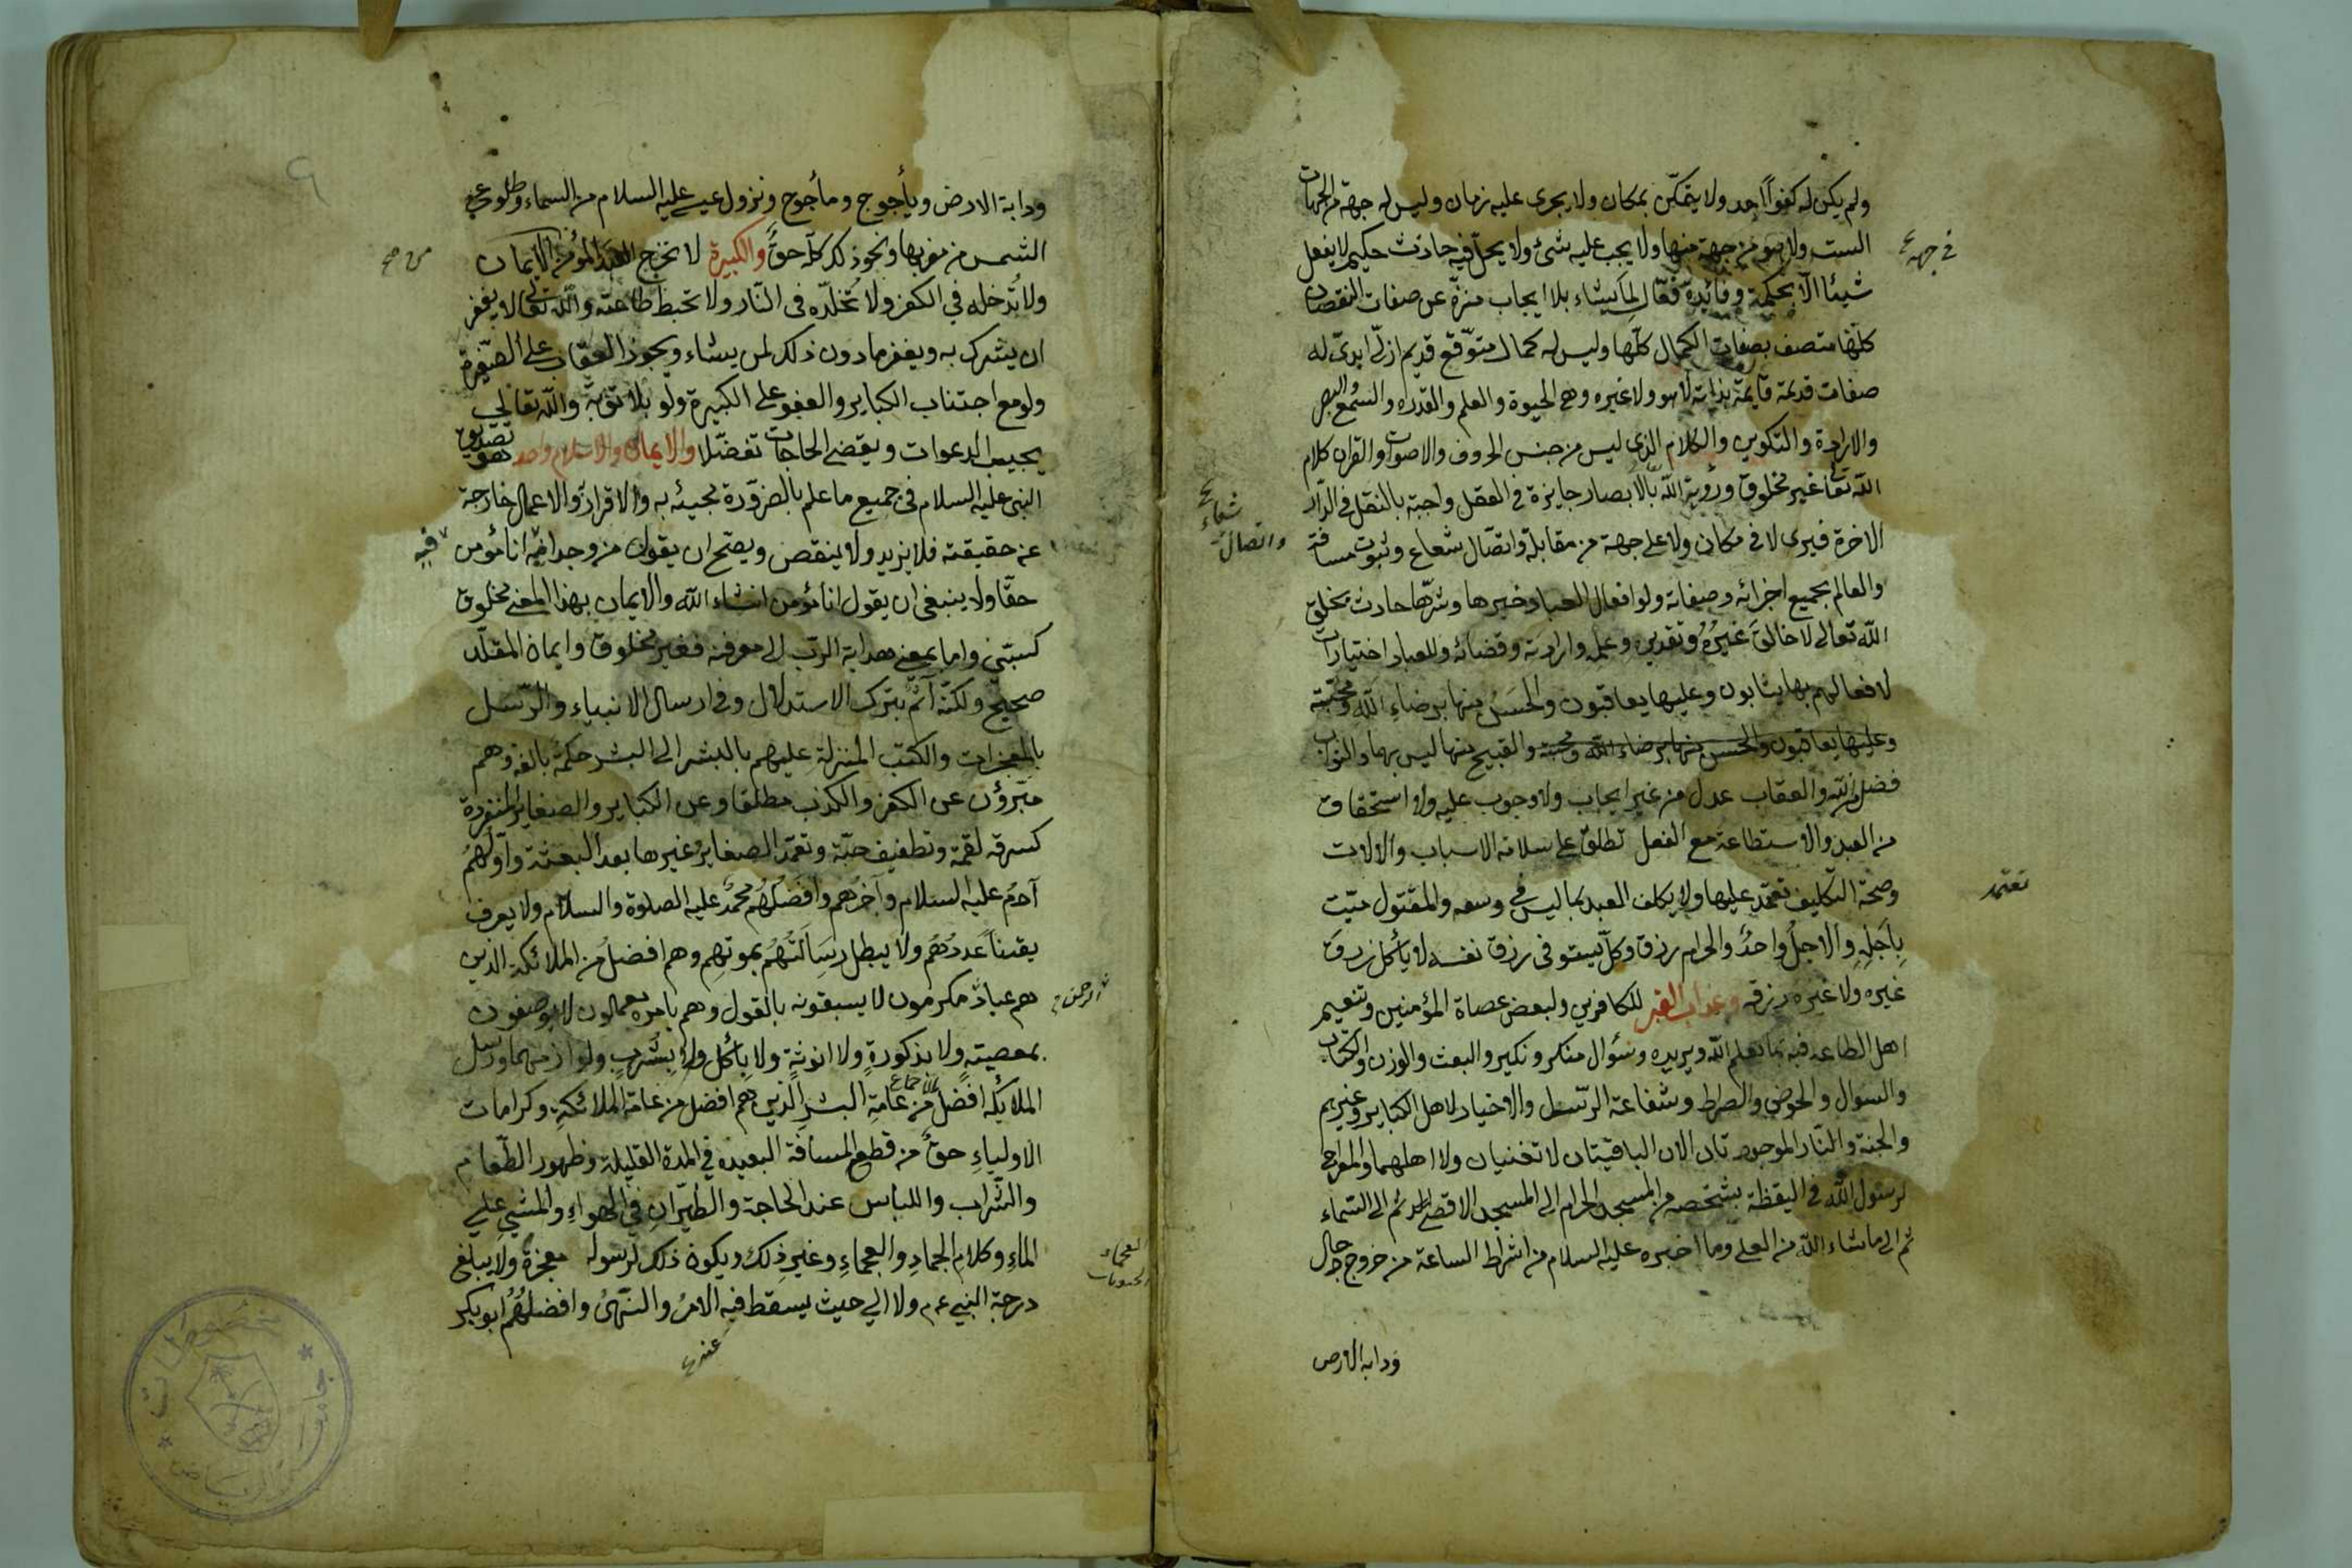 ولم يكن له كفواً احد ولا يتمكّن بمكان ولا يجرى عليه زمان وليس له جهة من الجهات
الست ولا هو من جهة منها ولا يجب عليه شئ ولا يحلّ فيه حادث حكيم لا يفعل
في جهة
شيئا الّا بحكمة وفائدة فعّال لما يشاء بلا ايجاب منزّه عن صفات النقصان
كلّها متصف بصفات الكمال كلّها وليس له كمال متوقّع قديم ازلّى ابدىّ له
صفات قديمة قايمة بذاته لا هو ولا غيره وهى الحيوة والعلم والقدره والسّمع والبصر
والارادة والتكوين والكلام الذى ليس من جنس الحروف والاصوات والقران كلام
اللّه تعالى غير مخلوق ورؤية اللّه بالابصار جايزة فى العقل واجبة بالنقل فى الدّار
الاخرة فيرى لا فى مكان ولا على جهة من مقابلة واتصّال شعاع وثبوت مسافة
شعاع
واتصال
والعالم بجميع اجزائه وصفاته ولو افعال العباد خيرها وشرّها حادث بخلق
اللّه تعالى لا خالق غيرُهُ وتقديره وعلمه وارادته وقضائه وللعباد اختيارات
لافعالهم بها يثابون وعليها يعاقبون والحَسَنُ منها برضاءِ اللّه ومحبّته
وعليها يعاقبون والحسن منها برضاء اللّه ومحبته والقبيح منها ليس بهما والثواب
فضل من اللّه والعقاب عدل من غير ايجاب ولا وجوب عليه ولا استحقاق
من العبد والاستطاعة مع الفعل تطلق على سلامة الاسباب والالات
وصحّة التكليف تعتمد عليها ولا يكلف العبد بما ليس فى وسعه والمقتول ميّت
تعتمد
بِاَجَلِهِ والاجلُ واحدٌ والحرام رزق وكلّ يستوفى رزق نفسه لا يأكل رزق
غيره ولا غيره رزقه وعذاب القبر للكافرين ولبعض عصاة المؤمنين وتنعيم
اهل الطاعة فيه بما يعلم اللّه ويريده وسؤال منكر ونكير والبعث والوزن والكتاب
والسؤال والحوض والصراط وشفاعة الرّسل والاخيار لاهل الكباير وغيرهم
والجنة والنّار الموجودتان الان الباقيتان لا تفنيان ولا اهلهما والمعراج
لرسول اللّه فى اليقظة بشخصه من المسجد الحرام الى المسجد الاقصى ثم الى السّماء
ثم الى ما شاء اللّه من العلى وما اخبره عليه السلام من اشراط الساعة من خروج دجال
ودابه الارض
ودابة الارض ويأجوج ومأجوج ونزول عيسى عليه السلام من السماء وطلوع
الشمس من مغربها ونحو ذلك كلّه حقٌّ والكبيرة لا تخرج العبد المؤمن من الايمان
ولا تُدخله في الكفر ولا تُخلّده فى النّار ولا تحبط طاعته واللّه تعالى لا يغفر
ان يشرك به ويغفر ما دون ذلك لمن يشاء ويجوز العقاب على الصّغيرة
ولو مع اجتناب الكباير والعفو على الكبيرة ولو بلا توبة واللّه تعالى
يجيب الدعوات ويقضى الحاجات تفضّلا والايمان والاسلام واحد وهو تصديق
النبى عليه السلام فى جميع ما علم بالضرورة مجيئه به والاقرار والاعمال خارجة
عن حقيقته فلا يزيد ولا ينقص ويصّح ان يقول من وجد فيه انا مؤمن
فيه
حقّا ولا ينبغى ان يقول انا مؤمن انشاء اللّه والايمان بهذا المعنى مخلوق
كسبّى واما بمعنى هداية الرّب الى معرفته فغير مخلوق وايمان المقلّد
صحيح ولكنّه آثم بترك الاستدلال وفى ارسال الانبياء والرّسل
بالمعجزات والكتب المنزلة عليهم بالبشر الى البشر حكمة بالغة وهم
مبّرؤن عن الكفر والكذب مطلقا وعن الكباير والصغاير المنفردة
كسرقه لقمة وتطفيف حبّة وتعمّد الصغاير غيرها بعد البعثة واوّلهُمُ
آدمُ عليه السلام وآخرُهم وافضلُهُم محمّدٌ عليه الصلوة والسلام ولا يعرف
يقيناً عددُهُم ولا يبطل رسَالَتُهُم بموتهم وهم افضلُ من الملائكة الذين
هم عبادٌ مكرمون لا يسبقونه بالقول وهم بامره يعملون لا يوصفون
الرحمن
بمعصيتهٍ ولا بذكورةٍ ولا انوثةٍ ولا بأكلٍ ولا بِشُربٍ ولوازمهما ورسل
الملائكة افضل من عامة البشر الذين هم افضل من عامة الملائكةِ وكرامات
بالاجماع
الاولياءِ حقٌّ من قطع المسافة البعيده في المدة القليلة وظهور الطّعام
والشّراب واللباس عند الحاجة والطّيَرانِ فى الهواءِ والمشي على
الماءِ وكلام الجمادِ والعجماءِ وغيرِ ذلك ويكون ذلك لرسوله معجزة ولا يبلغ
العجماء
الحيوانات
درجة النبي ءم ولا الي حيث يسقط فيه الامرُ والنّهىُ وافضلهُم ابو بكر
عنه